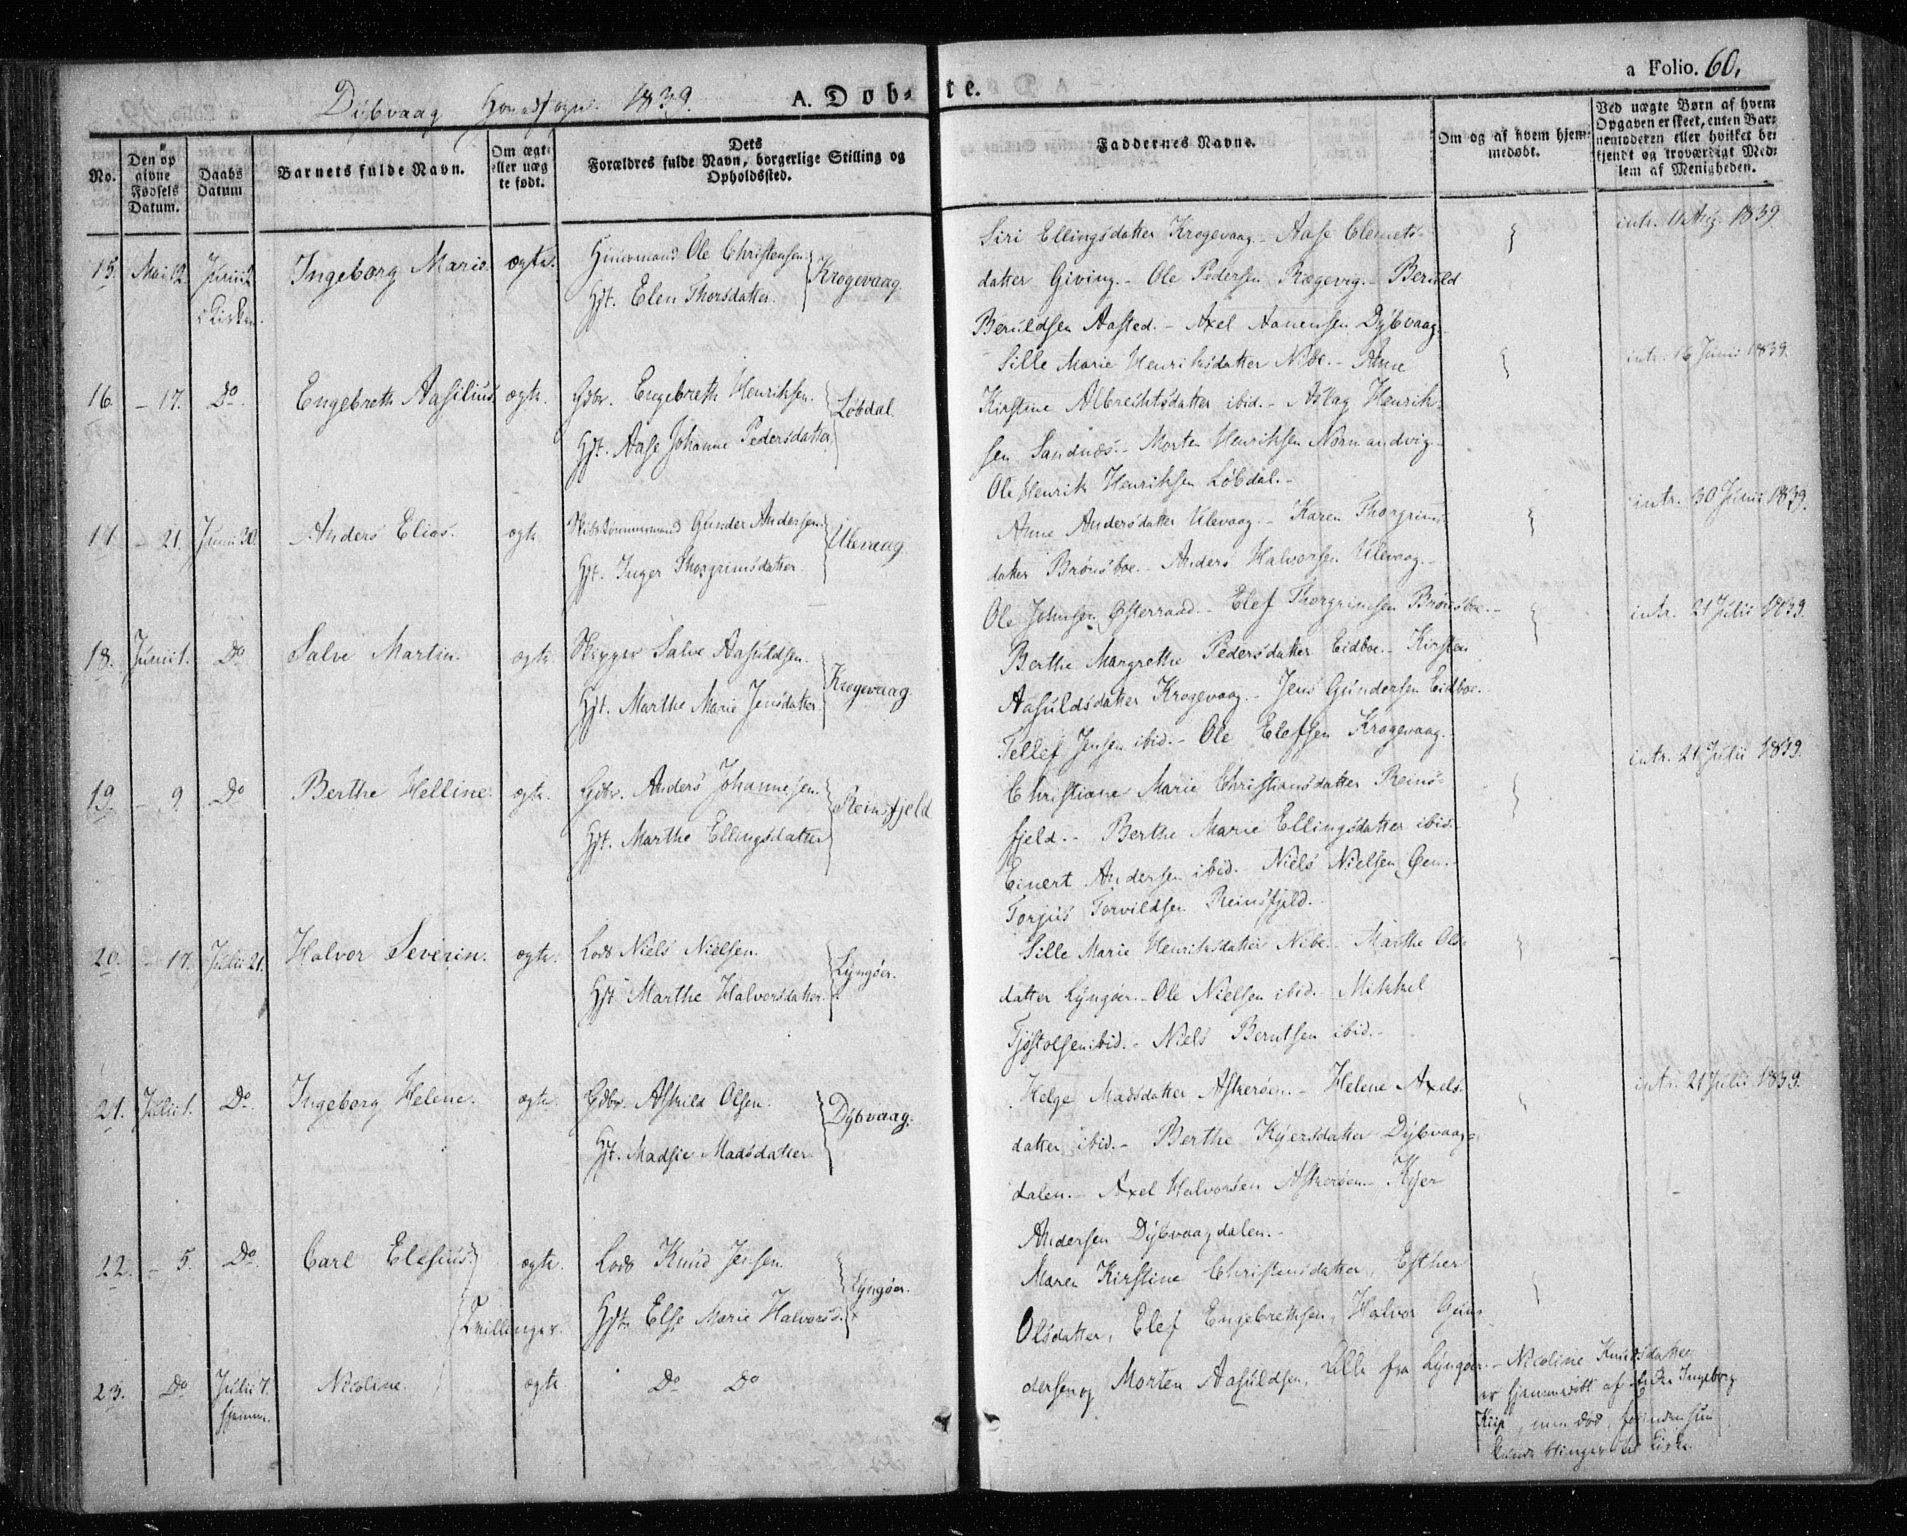 Dybvaag Hovedsogn. 1839. A. Døbte. a Folio. 60.
No.
Den op
givne
Fødsels
Datum.
Daabs
Datum
Barnets fulde Navn.
Om ægte
eller uæg
te født.
Dets
Forældres fulde Navn, borgerlige Stilling og
Opholdssted.
Faddernes Navne.
Om og af hvem hjem-
medøbt.
Ved uægte Børn af hvem
Opgaven er skeet, enten Bar-
nemoderen eller hvilket be-
kjendt og troværdigt Med-
lem af Menigheden.
15. Mai 12. Junii 2 i Kirken. Ingeborg Marie. ægte.
Ole Christensen
Hst. Elen Thorsdatter. Krogevaag.
Siri Ellingsdatter Krogevaag.- Aase Clemets-
datter Giving.- Ole Pedersen Rægevig.- Beruld
Beruldsen Aasted.- Axel Aanensen Dybvaag.
intr. 1839
16. - 17. Do. Engebreth Aasilius. ægte.
Gdbr. Engebreth Henriksen.
Hst. Aase Johanne Pedersdatter Løbdal.
Sille Marie Henriksdatter Nibe.- Anne
Kirstine Albrechtsdatter ibid.- Aslag Henrik-
sen Sandnæs.- Morten Henriksen Normandvig-
Ole Henrik Henriksen Løbdal.-
intr. 16 Junii 1839.
17. - 21. Junii 30. Anders Elias. ægte.
Skibstømmermand Gunder Andersen.
Hst. Inger Thorgrimsdatter. Ulevaag.
Anne Andersdatter Ulevaag.- Karen Thorgrims-
datter Brønsboe.- Anders Halvorsen Ulevaag.-
Ole Johnsen Østeraad.- Elef Thorgrimsen Brønsboe.-
intr. 30 Junii 1839.
18. Junii 1. Do Salve Martin. ægte.
Skipper Salve Aasuldsen.
Hst. Marthe Marie Jensdatter. Krogevaag.
Berthe Margrethe Pedersdatter Eidboe.- Kirsten
Aasuldsdatter Krogevaag.- Jens Gundersen Eidboe.
Tellef Jensen ibid.- Ole Elefsen Krogevaag.
intr. 21 Julii 1839.
19 - 9. Do Berthe Helline. ægte.
Gdbr. Anders Johannesen.
Hst. Marthe Ellingsdatter Reinsfjeld
Christiane Marie Christiansdatter Reins-
fjeld.- Berthe Marie Ellingsdatter ibid.
Einert Andersen ibid.- Niels Nielsen
Torjus Torvildsen Reinsfjeld.-
intr. 21 Julii 1839.
20. - 17. Julii 21. Halvor Severin. ægte.
Lods Niels Nielsen.
Hst. Marthe Halvorsdatter. Lyngøer.
Sille Marie Henriksdatter Nibe.- Marthe Ols-
datter Lyngøer.- Ole Nielsen ibid.- Mikkel
Tjøstolsen ibid.- Niels Berntsen ibid.-
21. Julii 1. Do. Ingeborg Helene. ægte.
Gdbr. Askild Olsen.
Hst. Madsie Madsdatter Dybvaag.
Helge Madsdatter Askerøen.- Helene Axels-
datter ibid.- Berthe Kyersdatter Dybvaag-
dalen.- Axel Halvorsen Askerøen.- Kyer
Andersen Dybvaagdalen.-
intr. 21 Julii 1839.
22. - 5. Do. Carl Elesius. ægte.
Tvillinger.
Lods Knud Jensen.
Hst. Else Marie Halvorsd. Lyngøer.
Maren Kirstine Christensdatter, Esther
Olsdatter, Elef Engebrethsen, Halvor Gun-
dersen og Morten Aasuldsen, alle fra Lyngøer.
23. Do Julii 7. hjemme. Nicoline. ægte
Do Do
Nicoline Knudsdatter
er hjemmedøbt af Ingeborg
men død, førend hun
kunde bringes til Kirke.